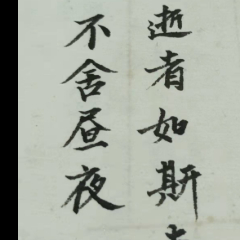 逝者如斯
不舍昼夜